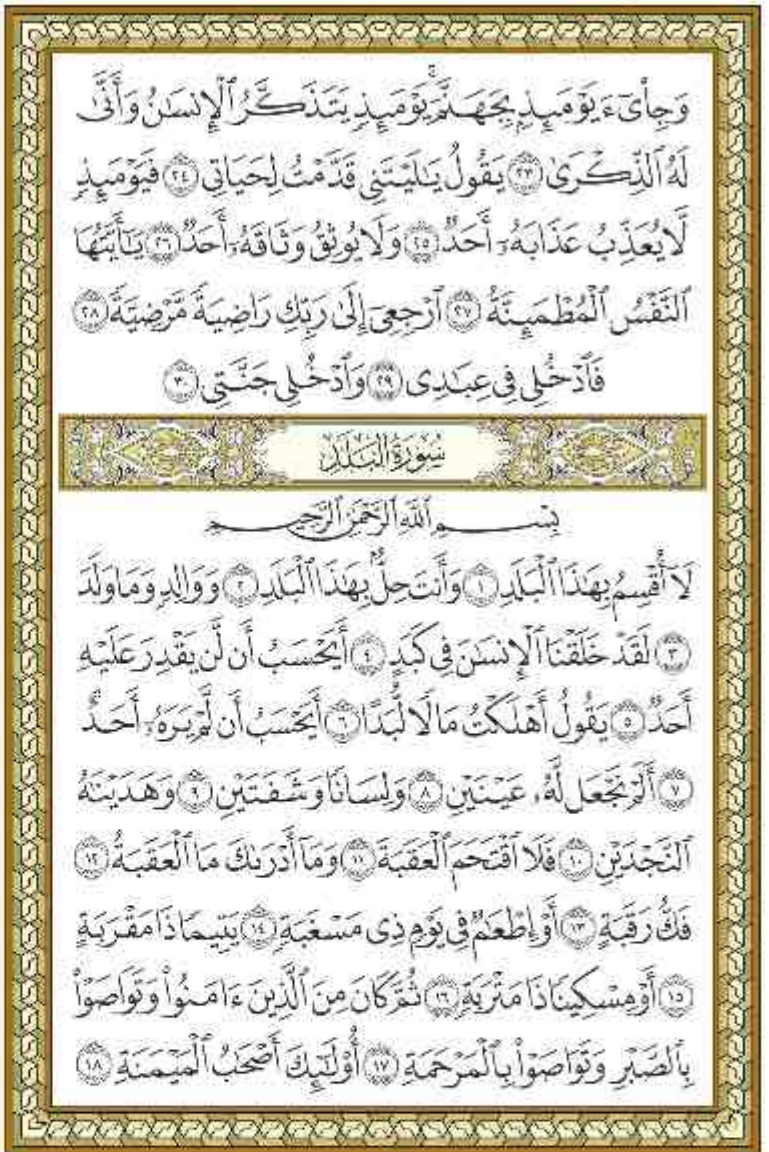 وَجِاْىٓءَ يَوْمَئِذِۭ بِجَهَنَّمَۚ يَوْمَئِذٖ يَتَذَكَّرُ ٱلْإِنسَٰنُ وَأَنَّىٰ
لَهُ ٱلذِّكْرَىٰ ٢٣ يَقُولُ يَٰلَيْتَنِى قَدَّمْتُ لِحَيَاتِى ٢٤ فَيَوْمَئِذٖ
لَّا يُعَذِّبُ عَذَابَهُۥٓ أَحَدٌ ٢٥ وَلَا يُوثِقُ وَثَاقَهُۥٓ أَحَدٌ ٢٦ يَٰٓأَيَّتُهَا
ٱلنَّفْسُ ٱلْمُطْمَئِنَّةُ ٢٧ ٱرْجِعِىٓ إِلَىٰ رَبِّكِ رَاضِيَةً مَّرْضِيَّةً ٢٨
فَٱدْخُلِى فِى عِبَٰدِى ٢٩ وَٱدْخُلِى جَنَّتِى ٣٠
سُورَةُ الْبَلَدِ
بِسْمِ ٱللَّهِ ٱلرَّحْمَٰنِ ٱلرَّحِيمِ
لَآ أُقْسِمُ بِهَٰذَا ٱلْبَلَدِ ١ وَأَنتَ حِلُّۢ بِهَٰذَا ٱلْبَلَدِ ٢ وَوَالِدٍ وَمَا وَلَدَ
٣ لَقَدْ خَلَقْنَا ٱلْإِنسَٰنَ فِى كَبَدٍ ٤ أَيَحْسَبُ أَن لَّن يَقْدِرَ عَلَيْهِ
أَحَدٌ ٥ يَقُولُ أَهْلَكْتُ مَالًا لُّبَدًا ٦ أَيَحْسَبُ أَن لَّمْ يَرَهُۥٓ أَحَدٌ
٧ أَلَمْ نَجْعَل لَّهُۥ عَيْنَيْنِ ٨ وَلِسَانًا وَشَفَتَيْنِ ٩ وَهَدَيْنَٰهُ
ٱلنَّجْدَيْنِ ١٠ فَلَا ٱقْتَحَمَ ٱلْعَقَبَةَ ١١ وَمَآ أَدْرَىٰكَ مَا ٱلْعَقَبَةُ ١٢
فَكُّ رَقَبَةٍ ١٣ أَوْ إِطْعَٰمٌ فِى يَوْمٍ ذِى مَسْغَبَةٍ ١٤ يَتِيمًا ذَا مَقْرَبَةٍ
١٥ أَوْ مِسْكِينًا ذَا مَتْرَبَةٍ ١٦ ثُمَّ كَانَ مِنَ ٱلَّذِينَ ءَامَنُوا۟ وَتَوَاصَوْا۟
بِٱلصَّبْرِ وَتَوَاصَوْا۟ بِٱلْمَرْحَمَةِ ١٧ أُو۟لَٰٓئِكَ أَصْحَٰبُ ٱلْمَيْمَنَةِ ١٨